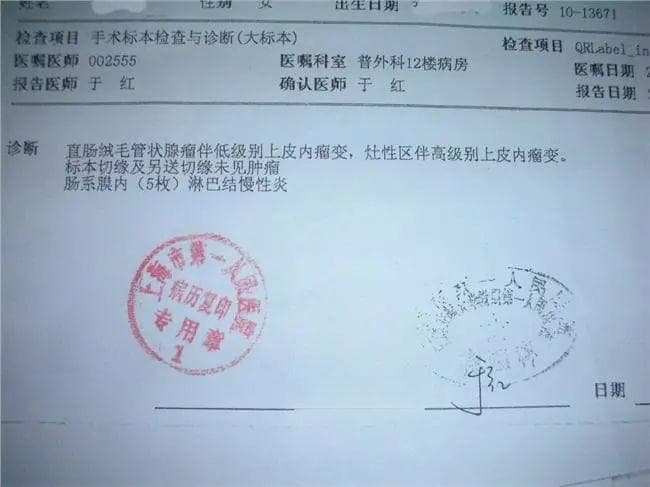 姓名 性别 女 出生日期 报告号 10-13671
检查项目 手术标本检查与诊断(大标本) 检查项目 QRLabel_in
医嘱医师 002555 医嘱科室 普外科12楼病房 医嘱日期 2
报告医师 于 红 确认医师 于 红 报告日期
诊断 直肠绒毛管状腺瘤伴低级别上皮内瘤变，灶性区伴高级别上皮内瘤变。
标本切缘及另送切缘未见肿瘤
肠系膜内（5枚）淋巴结慢性炎
上海市第一人民医院
病历复印
专用章
1
第一人民
于红
日期